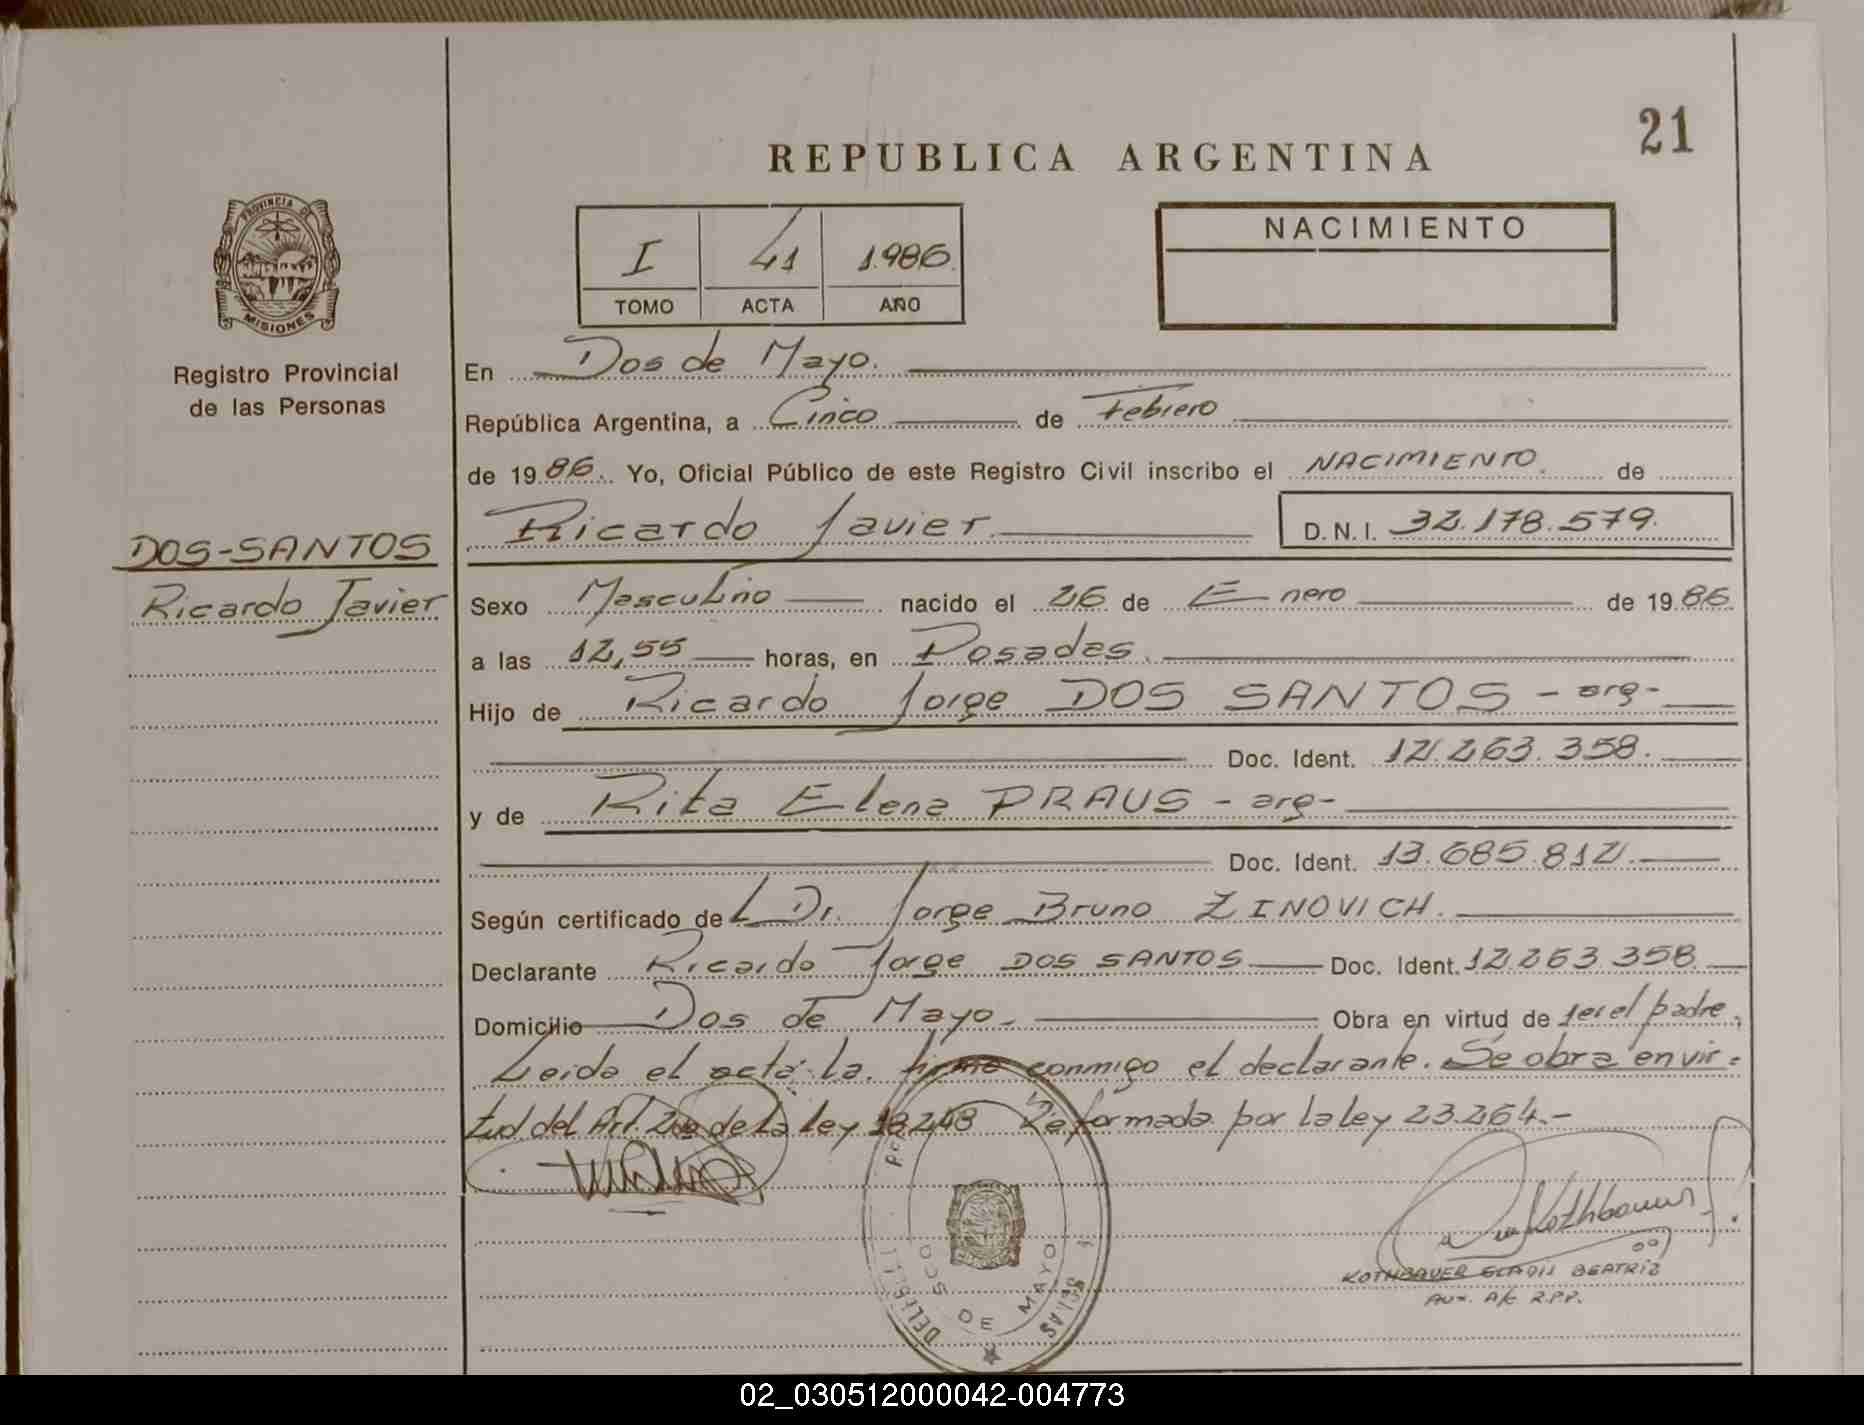 21
REPUBLICA ARGENTINA
PROVINCIA DE
MISIONES
Registro Provincial
de las Personas
I 41 1.986.
TOMO ACTA AÑO
NACIMIENTO
En Dos de Mayo.
República Argentina, a Cinco de Febrero
de 19 86. Yo, Oficial Público de este Registro Civil inscribo el NACIMIENTO. de
Ricardo Javier D.N.I. 32.178.579.
DOS-SANTOS
Ricardo Javier
Sexo Masculino nacido el 26 de Enero de 19 86
a las 12,55 horas, en Posadas.
Hijo de Ricardo Jorge DOS SANTOS - arg-
Doc. Ident. 12.263.358.
y de Rita Elena PRAUS - arg-
Doc. Ident. 13.685.812.
Según certificado del Dr. Jorge Bruno ZINOVICH.
Declarante Ricardo Jorge DOS SANTOS Doc. Ident. 12.263.358
Domicilio Dos de Mayo. Obra en virtud de ser el padre.
Leida el acta la firma conmigo el declarante. Se obra en vir=
tud del Art. 2do de la ley 18248 Reformada por la ley 23.264.-
DOS DE MAYO
Kothbauer
KOTHBAUER GLADIS BEATRIZ
Aux. A/C R.P.P.
02_030512000042-004773